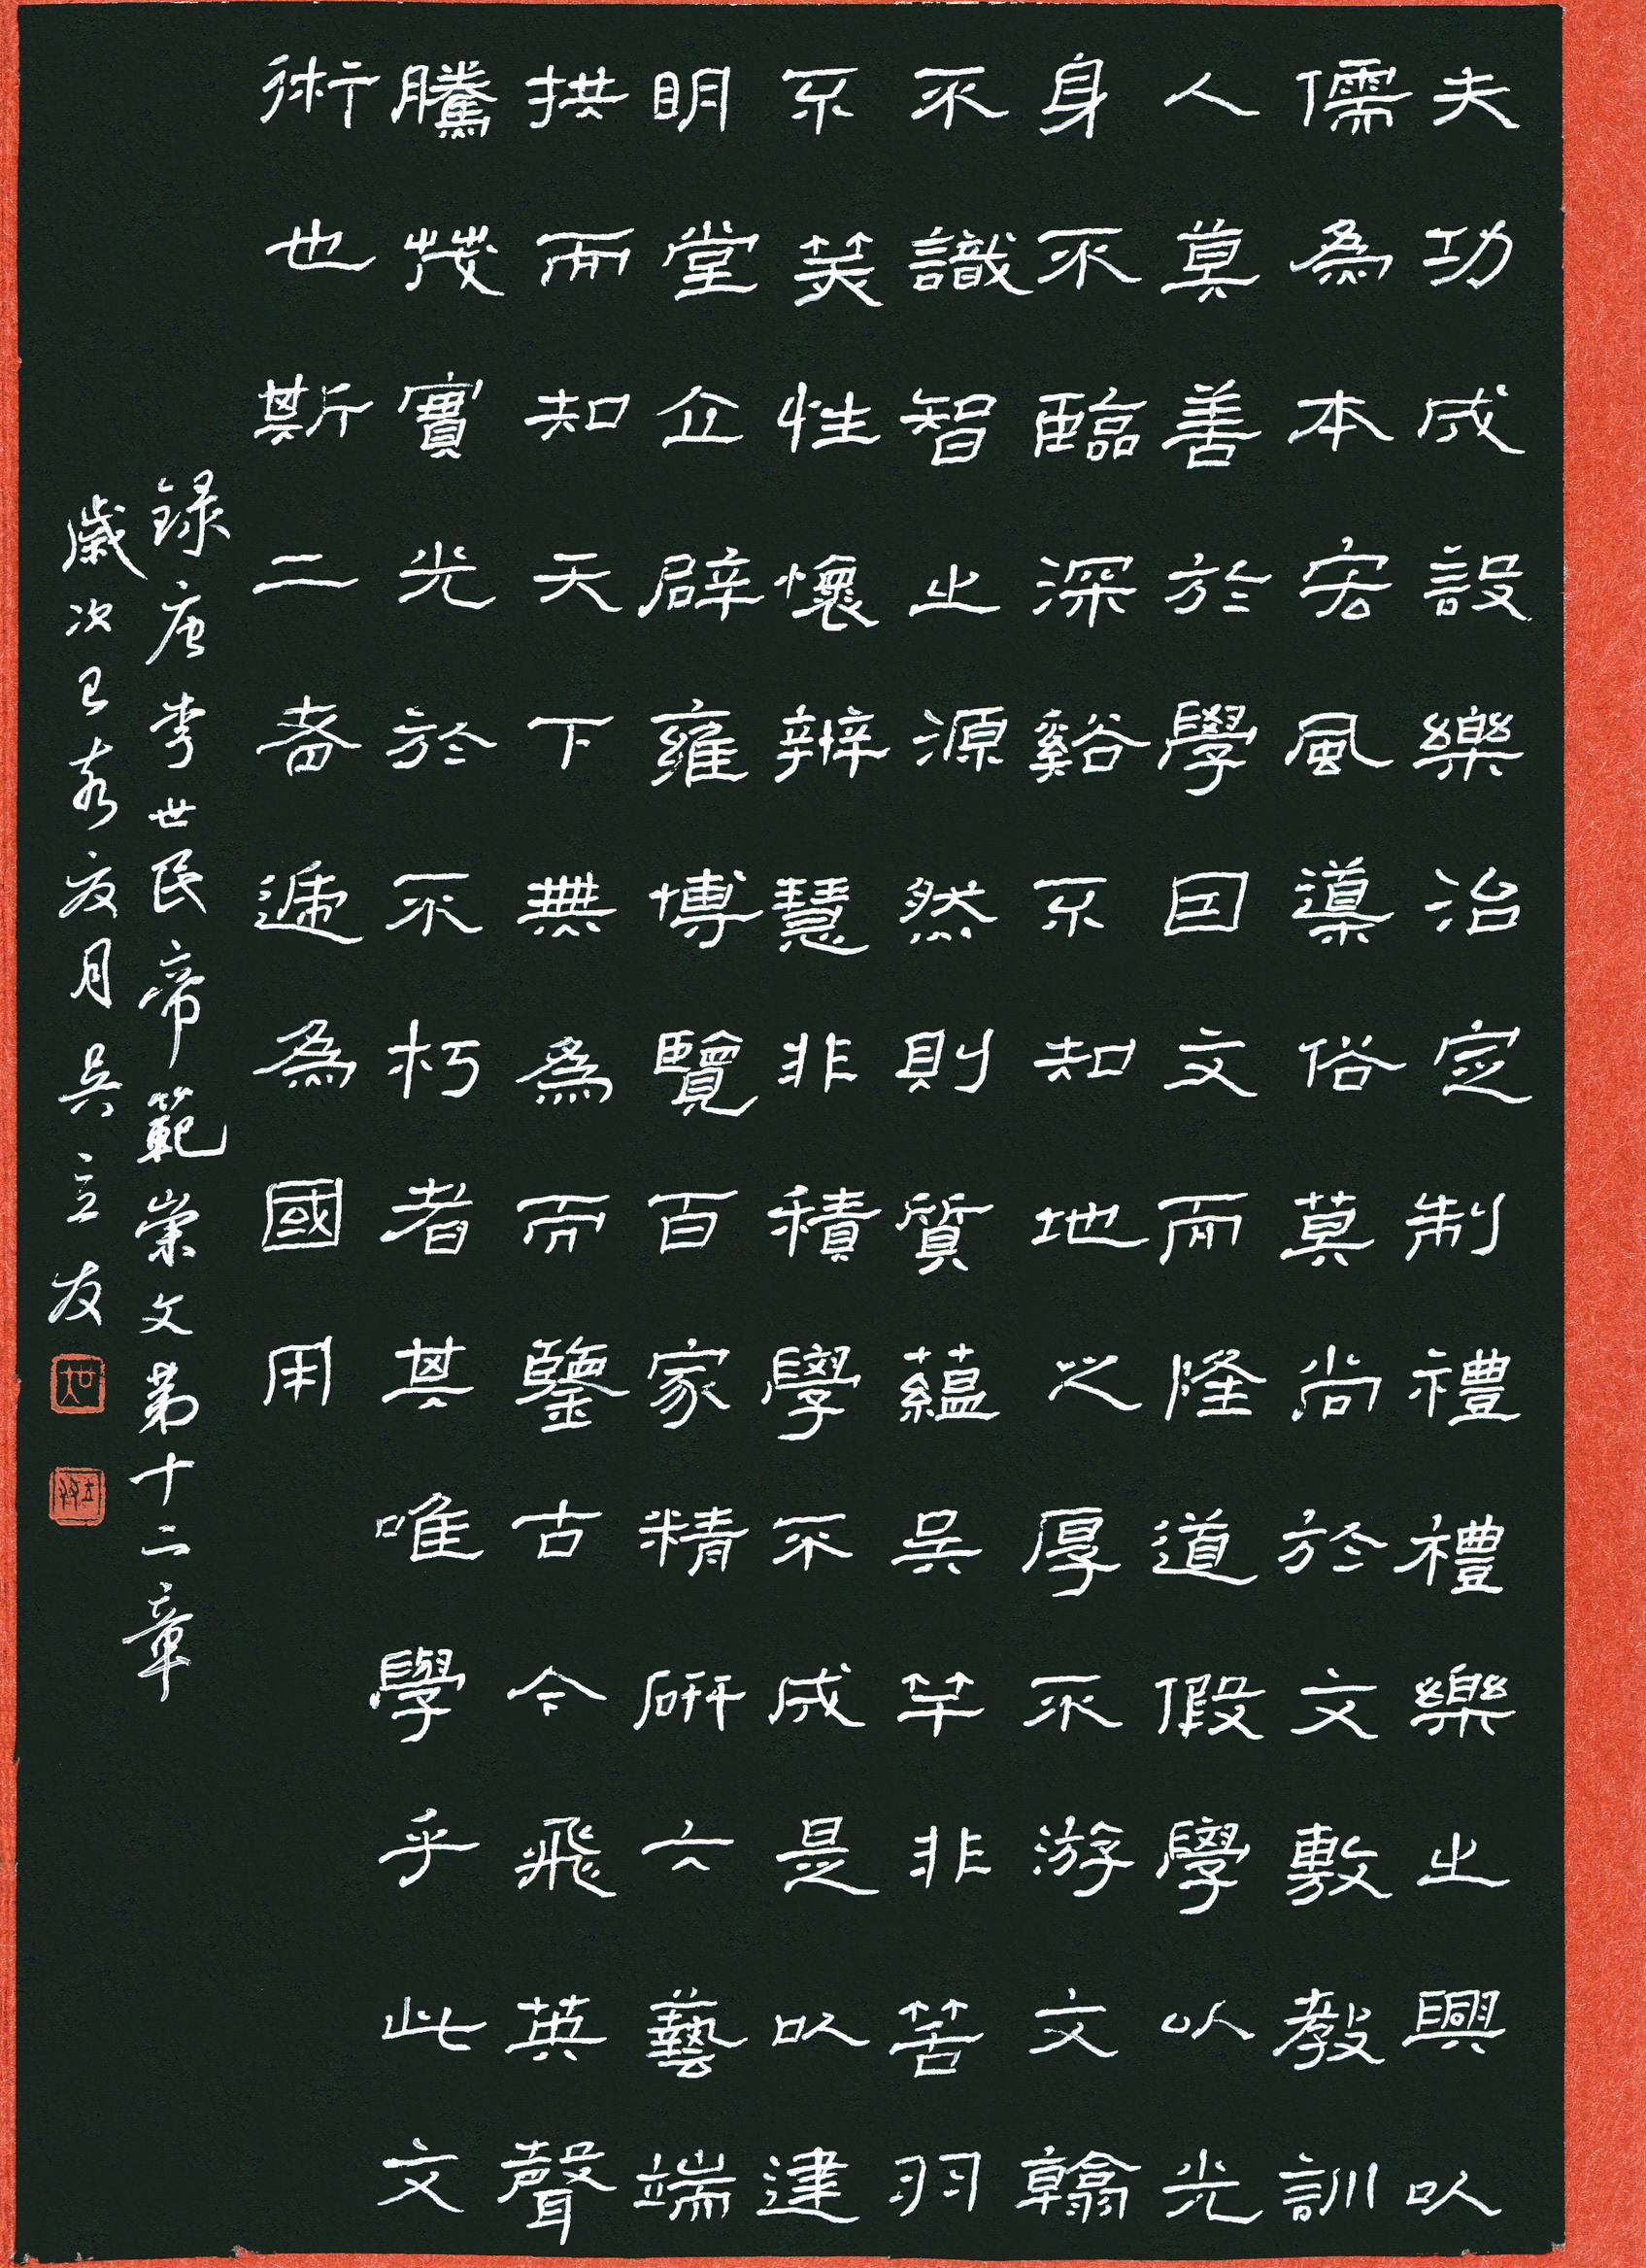 夫功成設樂治定制禮禮樂之興以
儒為本宏風導俗莫尚於文敷教訓
人莫善於學因文而隆道假學以光
身不臨深谿不知地之厚不游文翰
不識智之源然則質蘊吳竿非筈羽
不美性懷辨慧非積學不成是以建
明堂立辟雍博覽百家精研六藝端
拱而知天下無為而鑒古今飛英聲
騰茂實光於不朽者其唯學乎此文
術也斯二者遞為國用
錄唐李世民帝範崇文第十二章
歲次己亥夏月吳立友